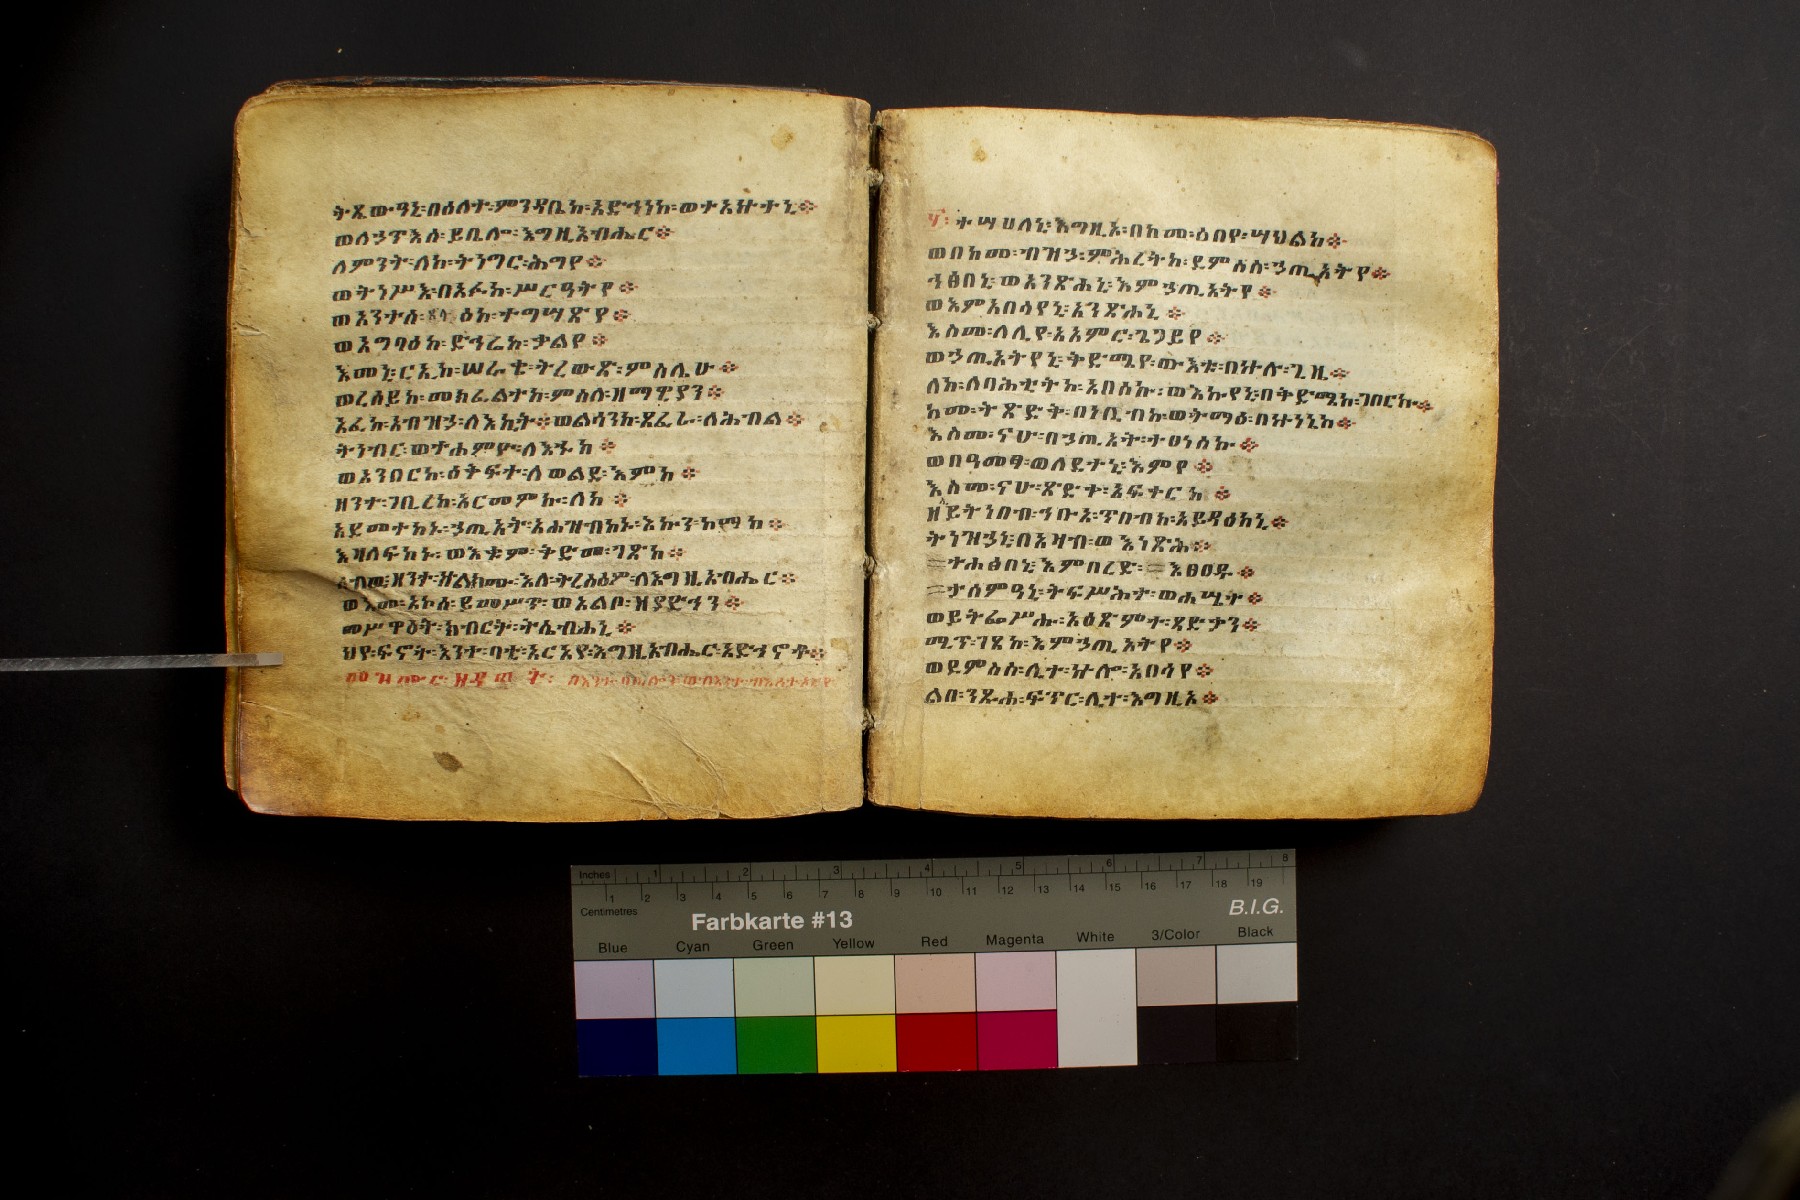 ትጼውዓኒ፡በዕለተ፡ምንዳቤከ፡አድኅነከ፡ወታአኵተኒ፨
ወለኃጥእሰ፡ይቤሎ፡እግዚአብሔር፨
ለምንት፡ለከ፡ትነግር፡ሕግየ፨
ወትነሥእ፡በአፉከ፡ሥርዓትየ፨
ወአንተሰ፡ ዕከ፡ተግሣጽየ፨
ወአግባዕከ፡ድኅሬከ፡ቃልየ፨
እመኒ፡ርኢከ፡ሠራቄ፡ትረውጽ፡ምስሌሁ፨
ወረሰይከ፡መክፈልተከ፡ምስለ፡ዘማዊያን፨
አፉከ፡አብዝኃ፡ለእኪት፨ወልሳንከ፡ጸፈራ፡ለሕብል፨
ትነብር፡ወተሐምዮ፡ለእኁከ፨
ወአንበርከ፡ዕቅፍተ፡ለወልደ፡እምከ፨
ዘንተ፡ገቢረከ፡አርመምኩ፡ለከ፨
አደመተከኑ፡ኃጢአት፡አሐዝብከኑ፡እኩን፡ከማከ፨
እዛለፍከኑ፡ወእቁም፡ቅድመ፡ገጽከ፨
ለብዉ፡ዘንተ፡ኵልክሙ፡እለ፡ትረስዕዎ፡ለእግዚአብሔር፨
ወእመ፡አኮሰ፡ይመሥጥ፡ወአልቦ፡ዘያድኅን፨
መሥዋዕት፡ክብርት፡ትሴብሐኒ፨
ህየ፡ፍኖት፡እንተ፡ባቲ፡አርአዮ፡እግዚአብሔር፡አድኅኖቶ፨
መዝሙር፡ዘዳዊት፡
፶፡ተሣሀለኒ፡እግዚኦ፡በከመ፡ዕበየ፡ሣህልከ፨
ወበከመ፡ብዝኃ፡ምሕረትከ፡ደምስስ፡ኃጢአትየ፨
ኅፅበኒ፡ወአንጽሐኒ፡እምኃጢአትየ፨
ወእምአበሳየኒ፡አንጽሐኒ፨
እስመ፡ለሊየ፡አአምር፡ጌጋይየ፨
ወኃጢአትየኒ፡ቅድሜየ፡ውእቱ፡በኵሉ፡ጊዜ፨
ለከ፡ለባሕቲትከ፡አበስኩ፡ወእኩየኒ፡በቅድሜከ፡ገበርኩ፨
ከመ፡ትጽድቅ፡በነቢብከ፡ወትማዕ፡በኵነኔከ፨
እስመ፡ናሁ፡በኃጢአት፡ተፀነስኩ፨
ወበዓመፃ፡ወለደተኒ፡እምየ፨
እስመ፡ናሁ፡ጽድቀ፡አፍቀርከ፨
ዘይትነበብ፡ኅቡአ፡ጥበብከ፡አይዳዕከኒ፨
ትነዝኃኒ፡በአዛብ፡ወእነጽሕ፨
ተሐፅበኒ፡እምበረድ፡ እፀዐዱ፨
ታሰምዓኒ፡ትፍሥሕተ፡ወሐሤተ፨
ወይትፌሥሑ፡አዕጽምተ፡ጻድቃን፨
ሚጥ፡ገጸከ፡እምኃጢአትየ፨
ወደምስስ፡ሊተ፡ኵሎ፡አበሳየ፨
ልበ፡ንጹሐ፡ፍጥር፡ሊተ፡እግዚኦ፨
Inches 1 2 3 4 5 6 7 8
1 2 3 4 5 6 7 8 9 10 11 12 13 14 15 16 17 18 19
Centimetres
Farbkarte #13
B.I.G.
Blue Cyan Green Yellow Red Magenta White 3/Color Black